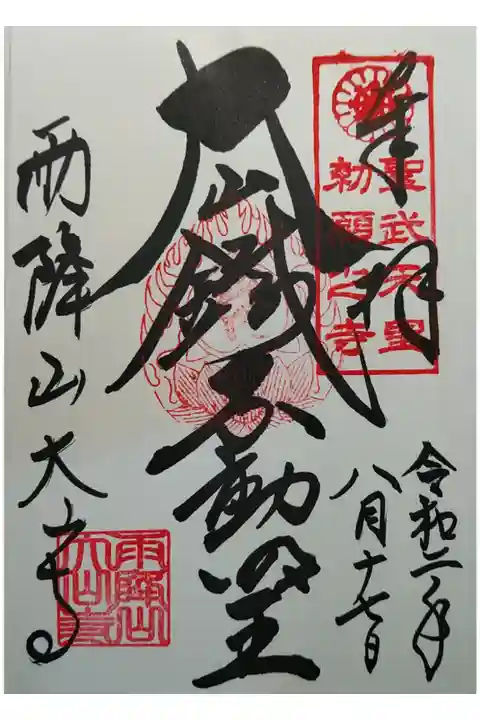 奉拝
聖武天皇
勅願寺
令和二年
八月十七日
大山鐵不動明王
雨降山大寺
雨降山
大山寺